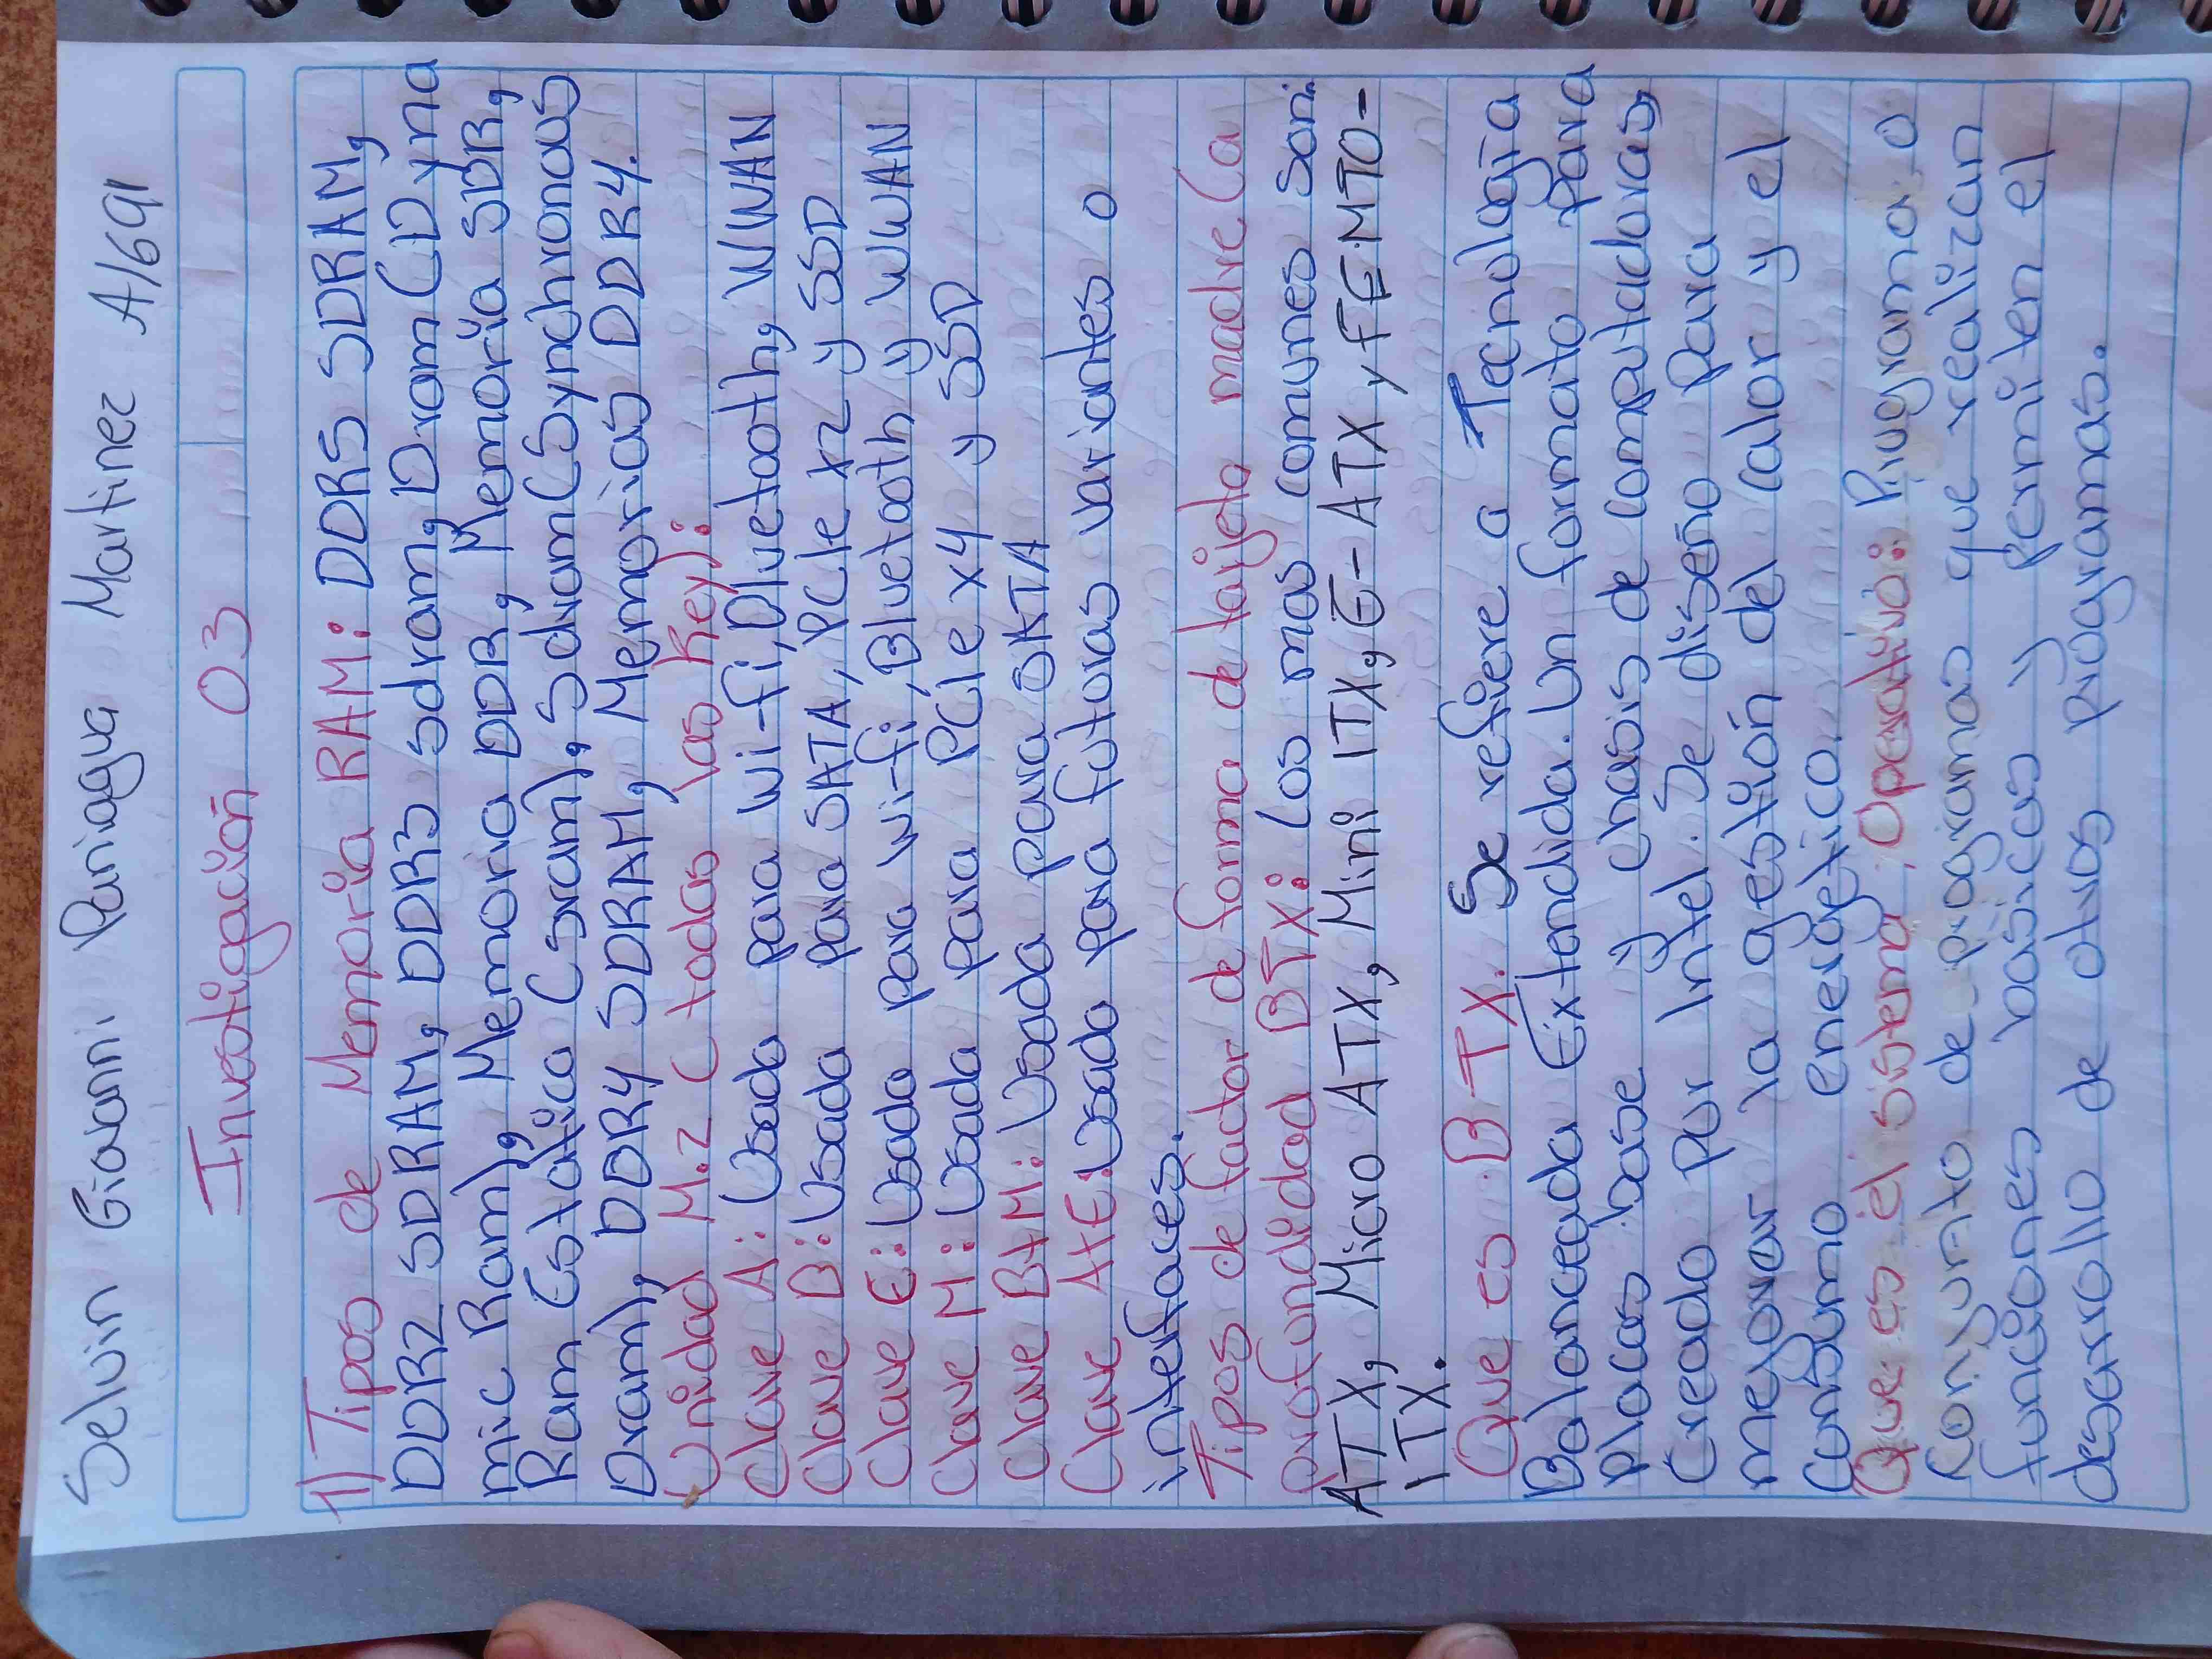 Selvin Giovanni Paniagua Martinez A/691
Investigación 03
1) Tipos de Memoria RAM: DDR5 SDRAM,
DDR2 SDRAM, DDR3 sdram, Dram (Dyna
mic Ram), Memoria DDR, Memoria SDR,
Ram Estatica (sram), Sdram (Synchronous
Dram), DDR4 SDRAM, Memorias DDR4.
Unidad M.2 (todas las Key):
Clave A: Usada para Wi-fi, Bluetooth, WWAN
Clave B: Usada para SATA, PCIe x2 y SSD
Clave E: Usada para Wi-fi, Bluetooth y WWAN
Clave M: Usada para PCIe x4 y SSD
Clave B+M: Usada para SATA
Clave A+E: Usado para futuras variantes o
interfaces.
Tipos de factor de forma de tarjeta madre (a
profundidad BTX: Los mas comunes son:
ATX, Micro ATX, Mini ITX, E-ATX y FEMTO-
ITX.
Que es BTX. Se refiere a Tecnología
Balanceada Extendida. Un formato para
placas base y chasis de computadoras,
Creado por Intel. Se diseño para
mejorar la gestión del calor y el
consumo energetico.
Que es el sistema Operativo: Programa o
Conjunto de programas que realizan
funciones basicas y permiten el
desarrollo de otros programas.